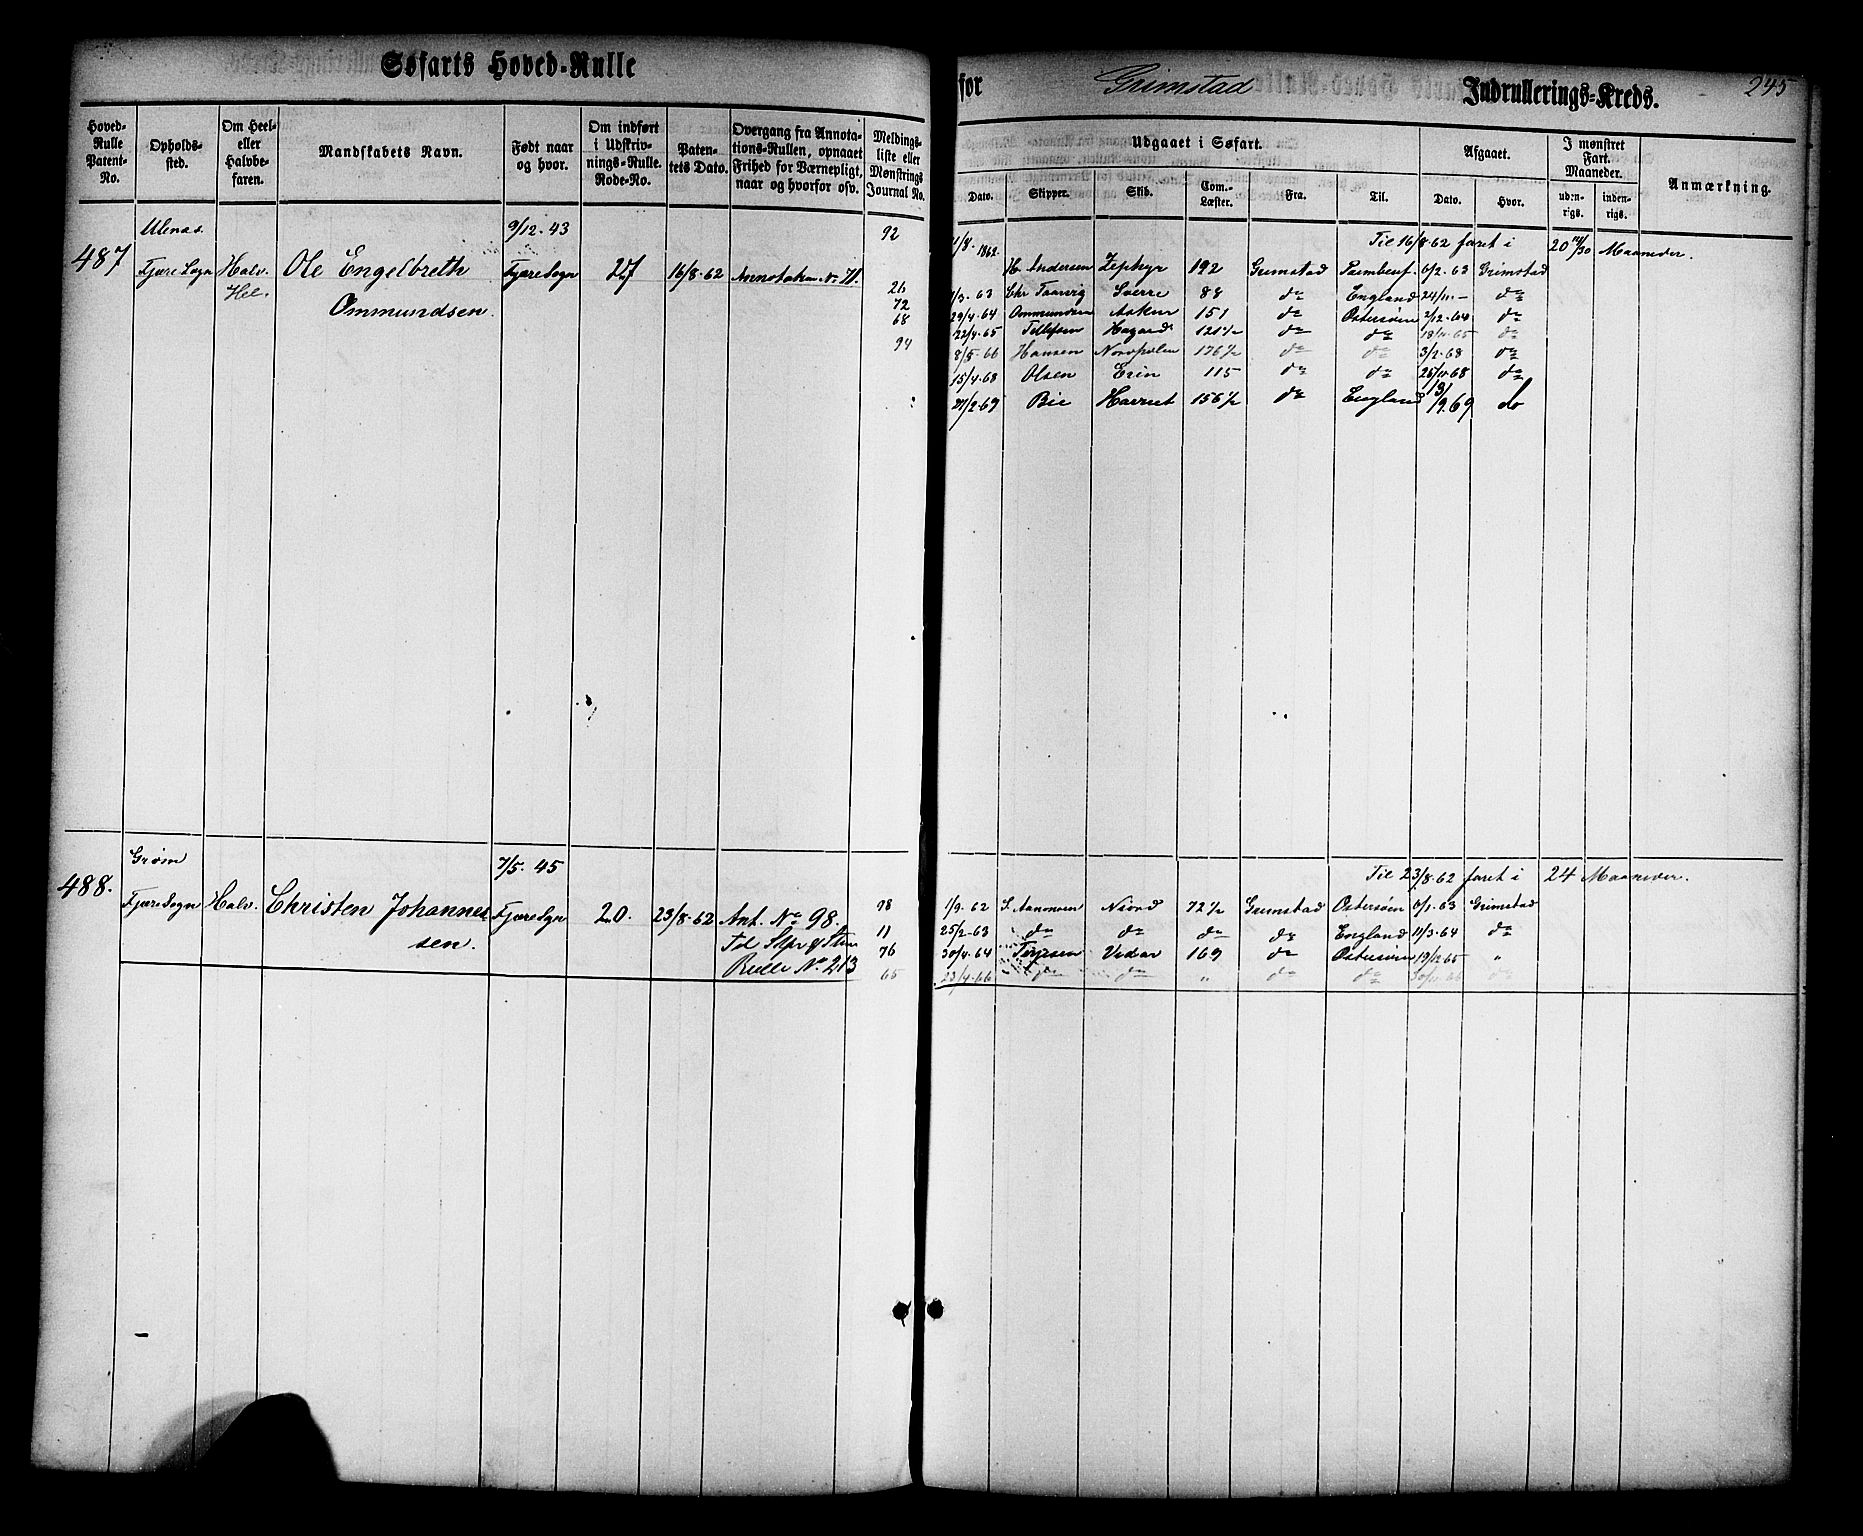 Søfarts Hoved-Rulle
for Grimstad Indrullerings-Kreds. 245
Hoved-Rulle Patent-No.
Opholds-sted.
Om Heel- eller Halvbe-faren.
Mandskabets Navn.
Født naar og hvor.
Om indført i Udskriv-nings-Rulle. Rode-No.
Paten-tets Dato.
Overgang fra Annota-tions-Rullen, opnaaet Frihed for Værnepligt, naar og hvorfor osv.
Meldings-liste eller Mønstrings Journal No.
Udgaaet i Søfart.
Dato. Skipper. Skib. Com.-Læster. Fra. Til.
Afgaaet.
Dato. Hvor.
I mønstret Fart. Maaneder.
udenrigs. indenrigs.
Anmærkning.
9/12. 43
487 Fjære Sogn Halv. Ole Engelbreth Fjære Sogn 27 16/8. 62 Annotation No 71. 92
Hel. Ommundsen.
26
72
68
94
1862. Til 16/8. 62 faret i 20 Maaneder.
H. Andersen Zephyr 192 Grimstad 6/2. 63 Grimstad
1/3. 63 Chr Taarvig Sverre 88 do England 24/11.- do
29/4. 64 Ommundsen 151 do Østersøen 2/12. 64 do
22/4. 65 Tellefsen 121 1/2 do do 18/11. 65 do
8/5. 66 Hansen Nordpolen 176 1/2 do do 3/2. 68 do
15/4. 68 Olsen Erin 115 do do 25/11. 68 do
27/2. 69 Bie Harriet 156 1/2 do England 19. 69 do
Grøm 7/5. 45
488. Fjære Sogn Halv. Christen Johannes Fjære Sogn 20. 23/8. 62 Ant. No 98. 78
sen. 11
Rulle No. 213 76
65
Til 23/8. 62 faret i 24 Maaneder.
1/9. 62 S. Aanonsen Niord 72 1/2 Grimstad Østersøen 6/1. 63 Grimstad
25/2. 63 do do do do England 11/3. 64 do
30/4. 64 Terjesen Vidar 169 do Østersøen 19/12. 65 "
23/4. 66 do do " do do 30/11. 66 do